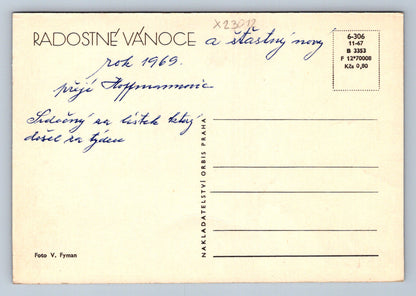 X23012
RADOSTNÉ VÁNOCE a šťastný nový
rok 1969.
přejí Hoffmannovi
za lístek který
došel za týden
6-306
11-67
B 3353
F 12*70008
Kčs 0,80
NAKLADATELSTVÍ ORBIS PRAHA
Foto V. Fyman